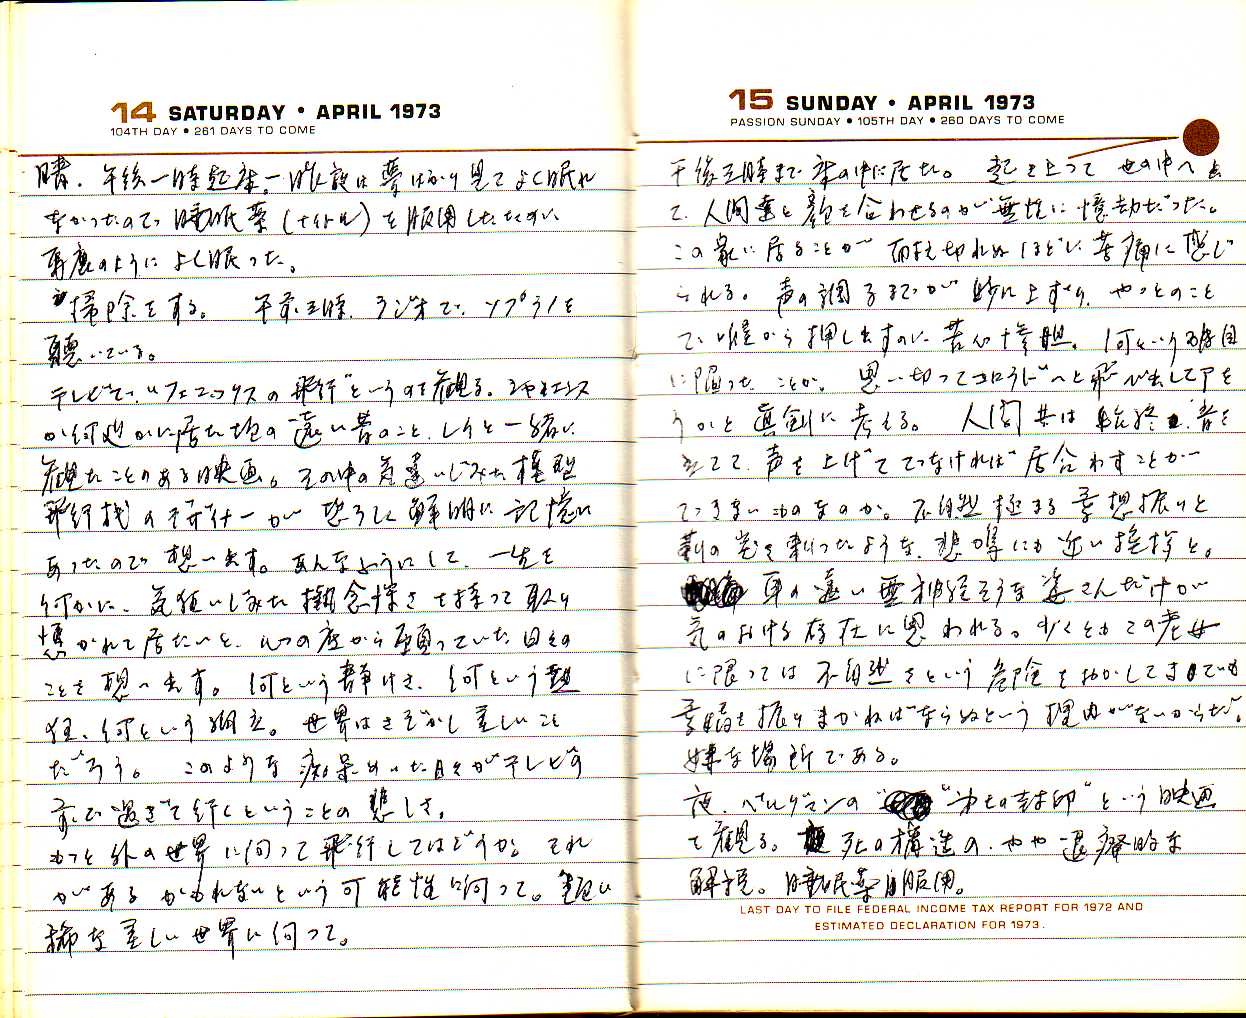 14 SATURDAY • APRIL 1973
104TH DAY • 261 DAYS TO COME
晴、午後一時起床。昨夜は夢ばかり見てよく眠れ
なかったので睡眠薬(ナイトル)を服用したせい
のようによく眠った。
掃除をする。午前三時、ラジオで、ソプラノを
聴いている。
テレビで、"フェニックスの飛行"というのを観る。
か何処かに居た頃の遠い昔のこと、と一緒に
観たことのある映画。その中の気違いじみた模型
飛行機のデザイナーが恐ろしく鮮明に記憶に
あったので想い出す。あんなふうにして、一生を
何かに、気狂いじみた執念深さを持って取り
憑かれて居たいと、心の底から願っていた日々の
ことを想い出す。何という静けさ、何という熱
狂、何という孤立。世界はさぞかし美しいこと
だろう。このような痴呆めいた日々がテレビの
前で過ぎて行くということの悲しさ。
もっと外の世界に向って飛行してはどうか。それ
があるかもれないという可能性に向って。
な美しい世界に向って。
15 SUNDAY • APRIL 1973
PASSION SUNDAY • 105TH DAY • 260 DAYS TO COME
午後三時まで床の中に居た。起き上って世の中へ出
て、人間達と顔を合わせるのが無性に億劫だった。
この家に居ることが耐え切れぬほどに苦痛に感じ
られる。声の調子までが妙に上ずり、やっとのこと
で喉から押し出すのに苦心惨憺。何という破目
に陥ったことか。思い切ってコロラドへと飛び出して了お
うかと真剣に考える。人間共は始終、音を
立てて、声を上げてでなければ居合わすことが
できないものなのか。不自然極まる愛想振りと
刺の先を刺ったような、悲鳴にも近い挨拶と。
耳の遠い無神経そうな婆さんだけが
気のおける存在に思われる。少くともこの老女
に限っては不自然さという危険をおかしてまでも
愛嬌を振りまかねばならぬという理由がないからだ。
嫌な場所である。
夜、ベルイマンの"第七の封印"という映画
を観る。死の構造の、やや退廃的な
解説。睡眠薬服用。
LAST DAY TO FILE FEDERAL INCOME TAX REPORT FOR 1972 AND
ESTIMATED DECLARATION FOR 1973.